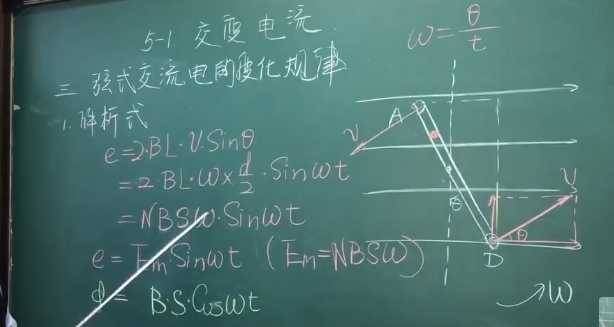 5-1 交变电流
ω=θ/t
三 弦式交流电的变化规律
1. 解析式
e=2·BL·V·Sinθ
=2 BL·ω×d/2·Sinωt
=NBSω·Sinωt
e=Em·Sinωt (Em=NBSω)
ϕ= B·S·Cosωt
A
V
B
V
θ
D
ω